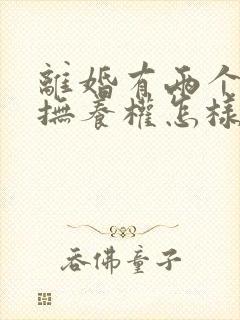 離婚有兩个
撫養權怎樣
吞佛童子